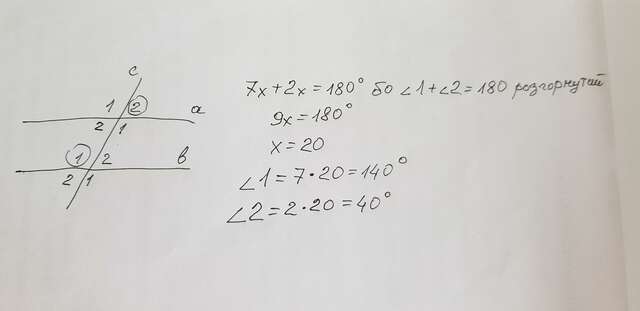 c
1 2 a
2 1
1 2 b
2 1
7x+2x=180° бо ∠1+∠2=180 розгорнутий
9x=180°
x=20
∠1=7·20=140°
∠2=2·20=40°